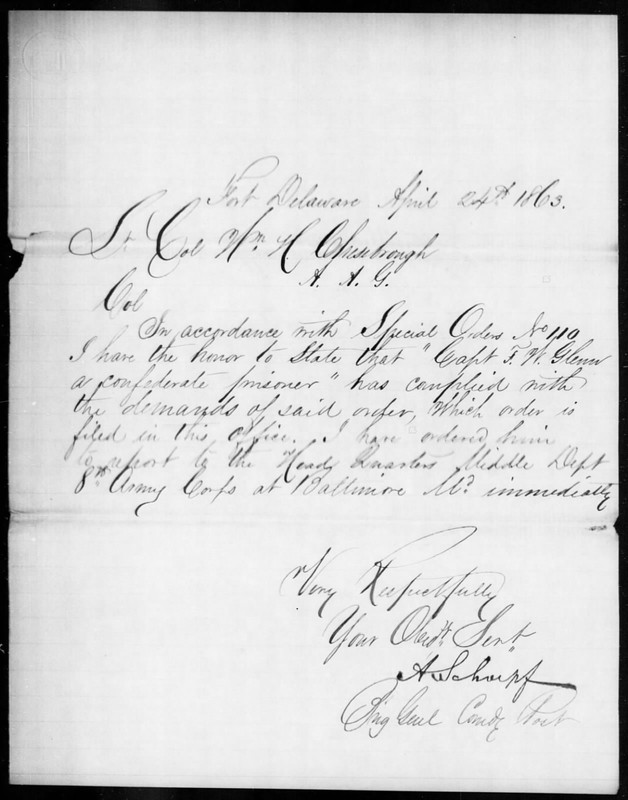 Fort Delaware April 24th 1863.
Lt Col Wm H Chesebrough
A. A. G.
Col
In accordance with Special Orders No 110
I have the honor to State that "Capt F. W. Glenn
a confederate prisoner" has complied with
the demands of said order, which order is
filed in this office. I have ordered him
to report to the Head Quarters Middle Dept
8th Army Corps at Baltimore Md immediately
Very Respectfully
Your Obedt. Servt
A Schoepf
Brig Genl Comdg Post